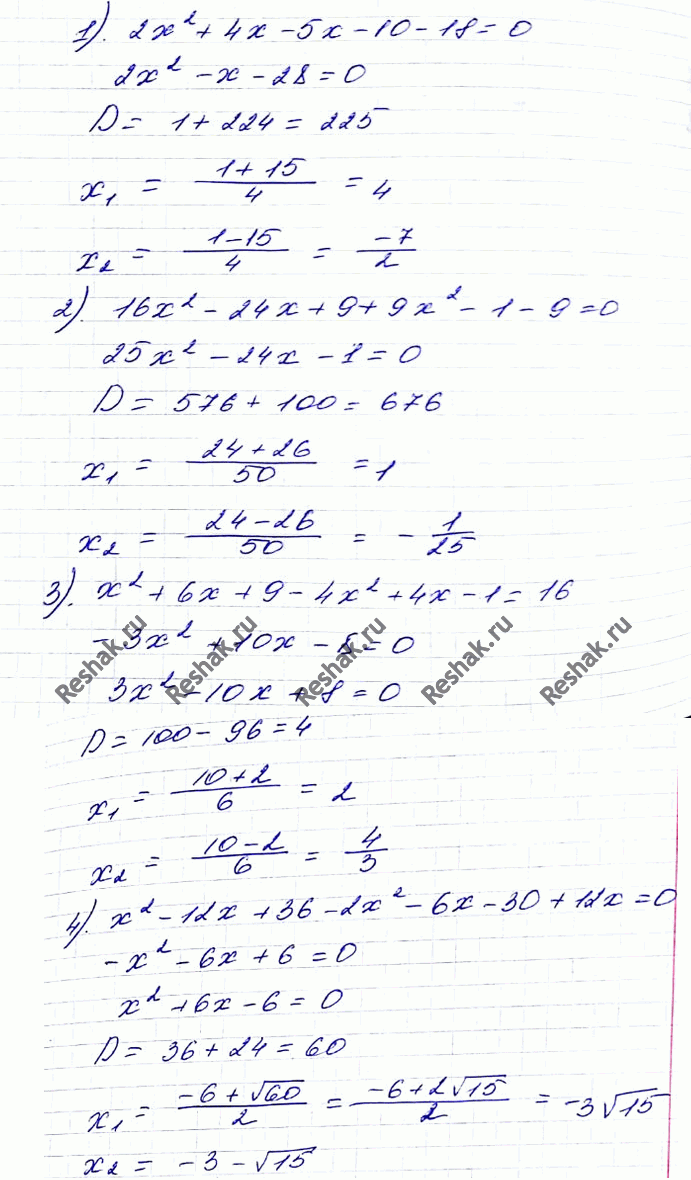 1). 2x² + 4x - 5x - 10 - 18 = 0
2x² - x - 28 = 0
D = 1 + 224 = 225
x₁ = (1 + 15)/4 = 4
x₂ = (1 - 15)/4 = -7/2
2). 16x² - 24x + 9 + 9x² - 1 - 9 = 0
25x² - 24x - 1 = 0
D = 576 + 100 = 676
x₁ = (24 + 26)/50 = 1
x₂ = (24 - 26)/50 = - 1/25
3). x² + 6x + 9 - 4x² + 4x - 1 = 16
- 3x² + 10x - 8 = 0
Reshak.ru Reshak.ru Reshak.ru Reshak.ru Reshak.ru
3x² - 10x + 8 = 0
D = 100 - 96 = 4
x₁ = (10 + 2)/6 = 2
x₂ = (10 - 2)/6 = 4/3
4). x² - 12x + 36 - 2x² - 6x - 30 + 12x = 0
- x² - 6x + 6 = 0
x² + 6x - 6 = 0
D = 36 + 24 = 60
x₁ = (-6 + √60)/2 = (-6 + 2√15)/2 = -3√15
x₂ = -3 - √15